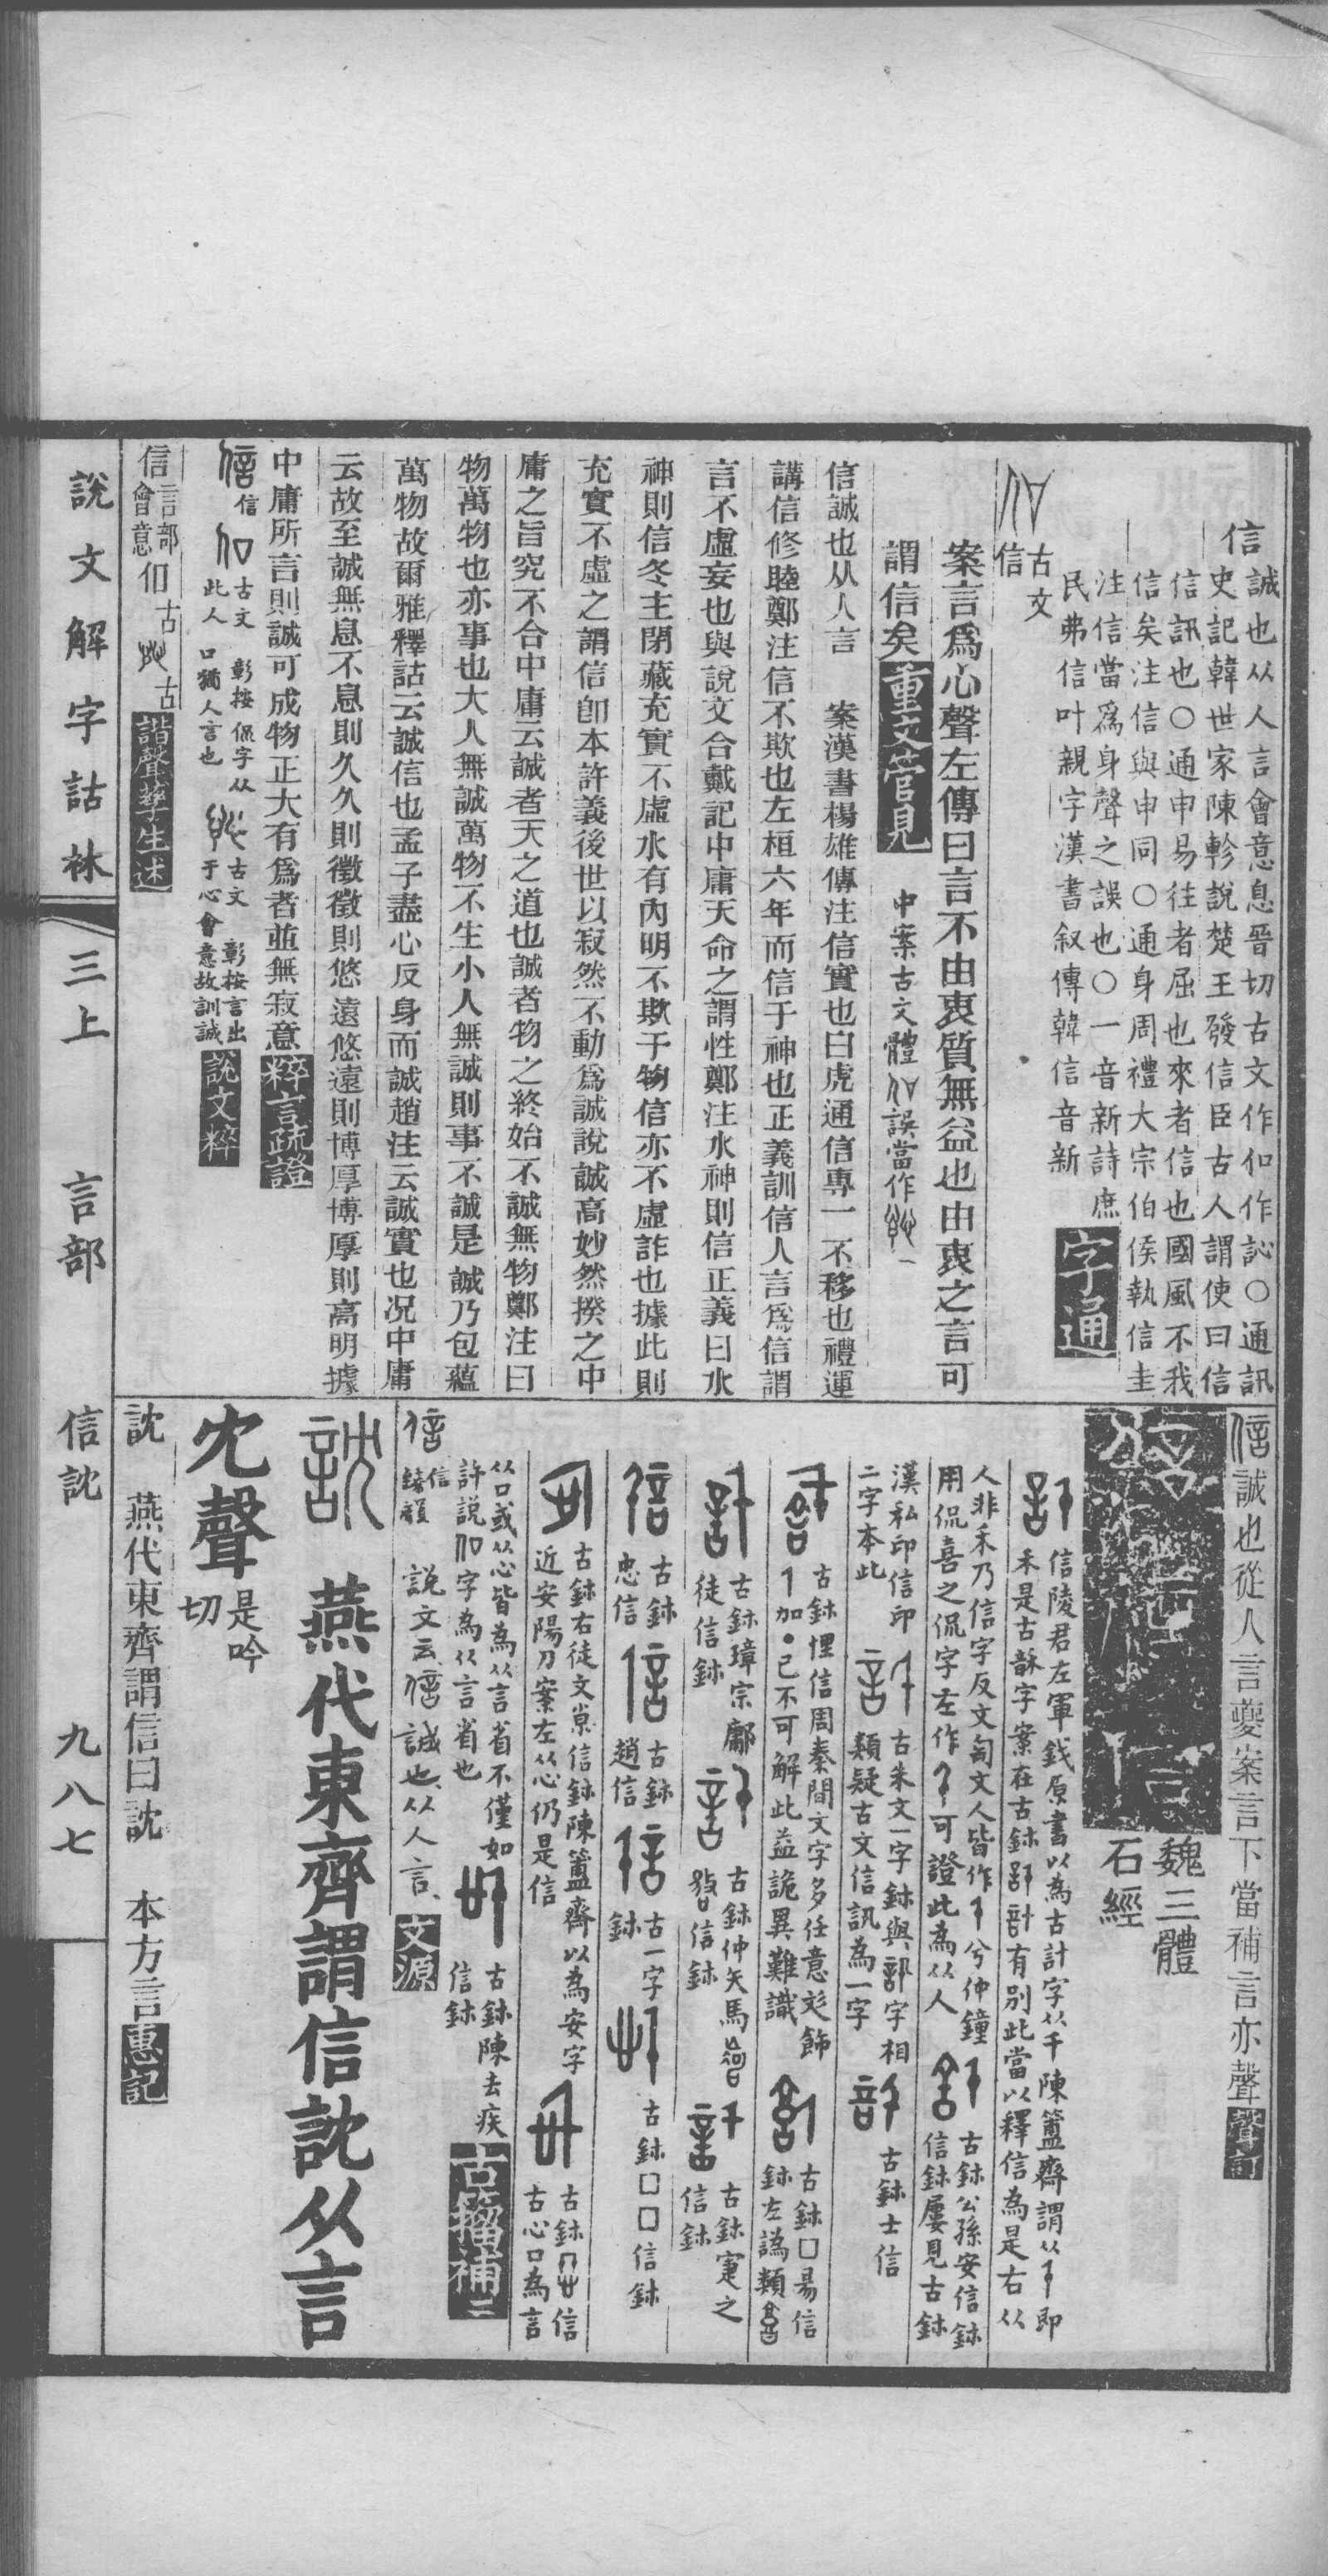 信
誠也从人言會意息晉切古文作㐰作訫○通訊
史記韓世家陳軫說楚王發信臣古人謂使曰信
信訊也○通申易往者屈也來者信也國風不我
信矣注信與申同○通身周禮大宗伯侯執信圭
注信當爲身聲之誤也○一音新詩庶
民弗信叶親字漢書叙傳韓信音新
字通
古文
信
案言爲心聲左傳曰言不由衷質無益也由衷之言可
謂信矣
重文管見
中案古文體誤當作
信誠也从人言 案漢書楊雄傳注信實也白虎通信專一不移也禮運
講信修睦鄭注信不欺也左桓六年而信于神也正義訓信人言爲信謂
言不虛妄也與說文合戴記中庸天命之謂性鄭注水神則信正義曰水
神則信冬主閉藏充實不虛水有內明不欺于物信亦不虛詐也據此則
充實不虛之謂信卽本許義後世以寂然不動爲誠說誠高妙然揆之中
庸之旨究不合中庸云誠者天之道也誠者物之終始不誠無物鄭注曰
物萬物也亦事也大人無誠萬物不生小人無誠則事不誠是誠乃包蘊
萬物故爾雅釋詁云誠信也孟子盡心反身而誠趙注云誠實也况中庸
云故至誠無息不息則久久則徵徵則悠遠悠遠則博厚博厚則高明據
中庸所言則誠可成物正大有爲者並無寂意
粹言疏證
信 古文 彰按 此人口猶人言也
古文 彰按言出于心會意故訓誠
說文粹
信 言部會意 古 古
諧聲孳生述
誠也從人言夔案言下當補言亦聲
聲訂
魏三體
石經
信陵君左軍鈛原書以為古計字从千陳簠齋謂从即
禾是古龢字案在古鉨有別此當以釋信為是右从
人非禾乃信字反文匋文人皆作兮仲鐘
用侃喜之侃字左作可證此為从人
古鉨公孫安信鉨
信鉨屢見古鉨
漢私印信印
二字本此
古朱文一字鉨與字相
類疑古文信訊為一字
古鉨士信
古鉨悝信周秦間文字多任意彣飾
加●已不可解此益詭異難識
古鉨□昜信
鉨左譌類
古鉨璋宗鄺
徒信鉨
古鉨仲矢馬
信鉨
古鉨寁之
信鉨
古鉨
忠信
古鉨
趙信
古一字
鉨
古鉨□□信鉨
古鉨右徒文信鉨陳簠齋以為安字
近安陽刀案左从心仍是信
古鉨信
古心口為言
从口或从心皆為从言省不僅如
許説㐰字為从言省也
古鉨陳去疾
信鉨
古籀補二
信
説文云信誠也从人言
文源
燕代東齊謂信訦从言
冘聲
是吟
切
訦 燕代東齊謂信曰訦 本方言
惠記
說文解字詁林
三上
言部
信訦
九八七